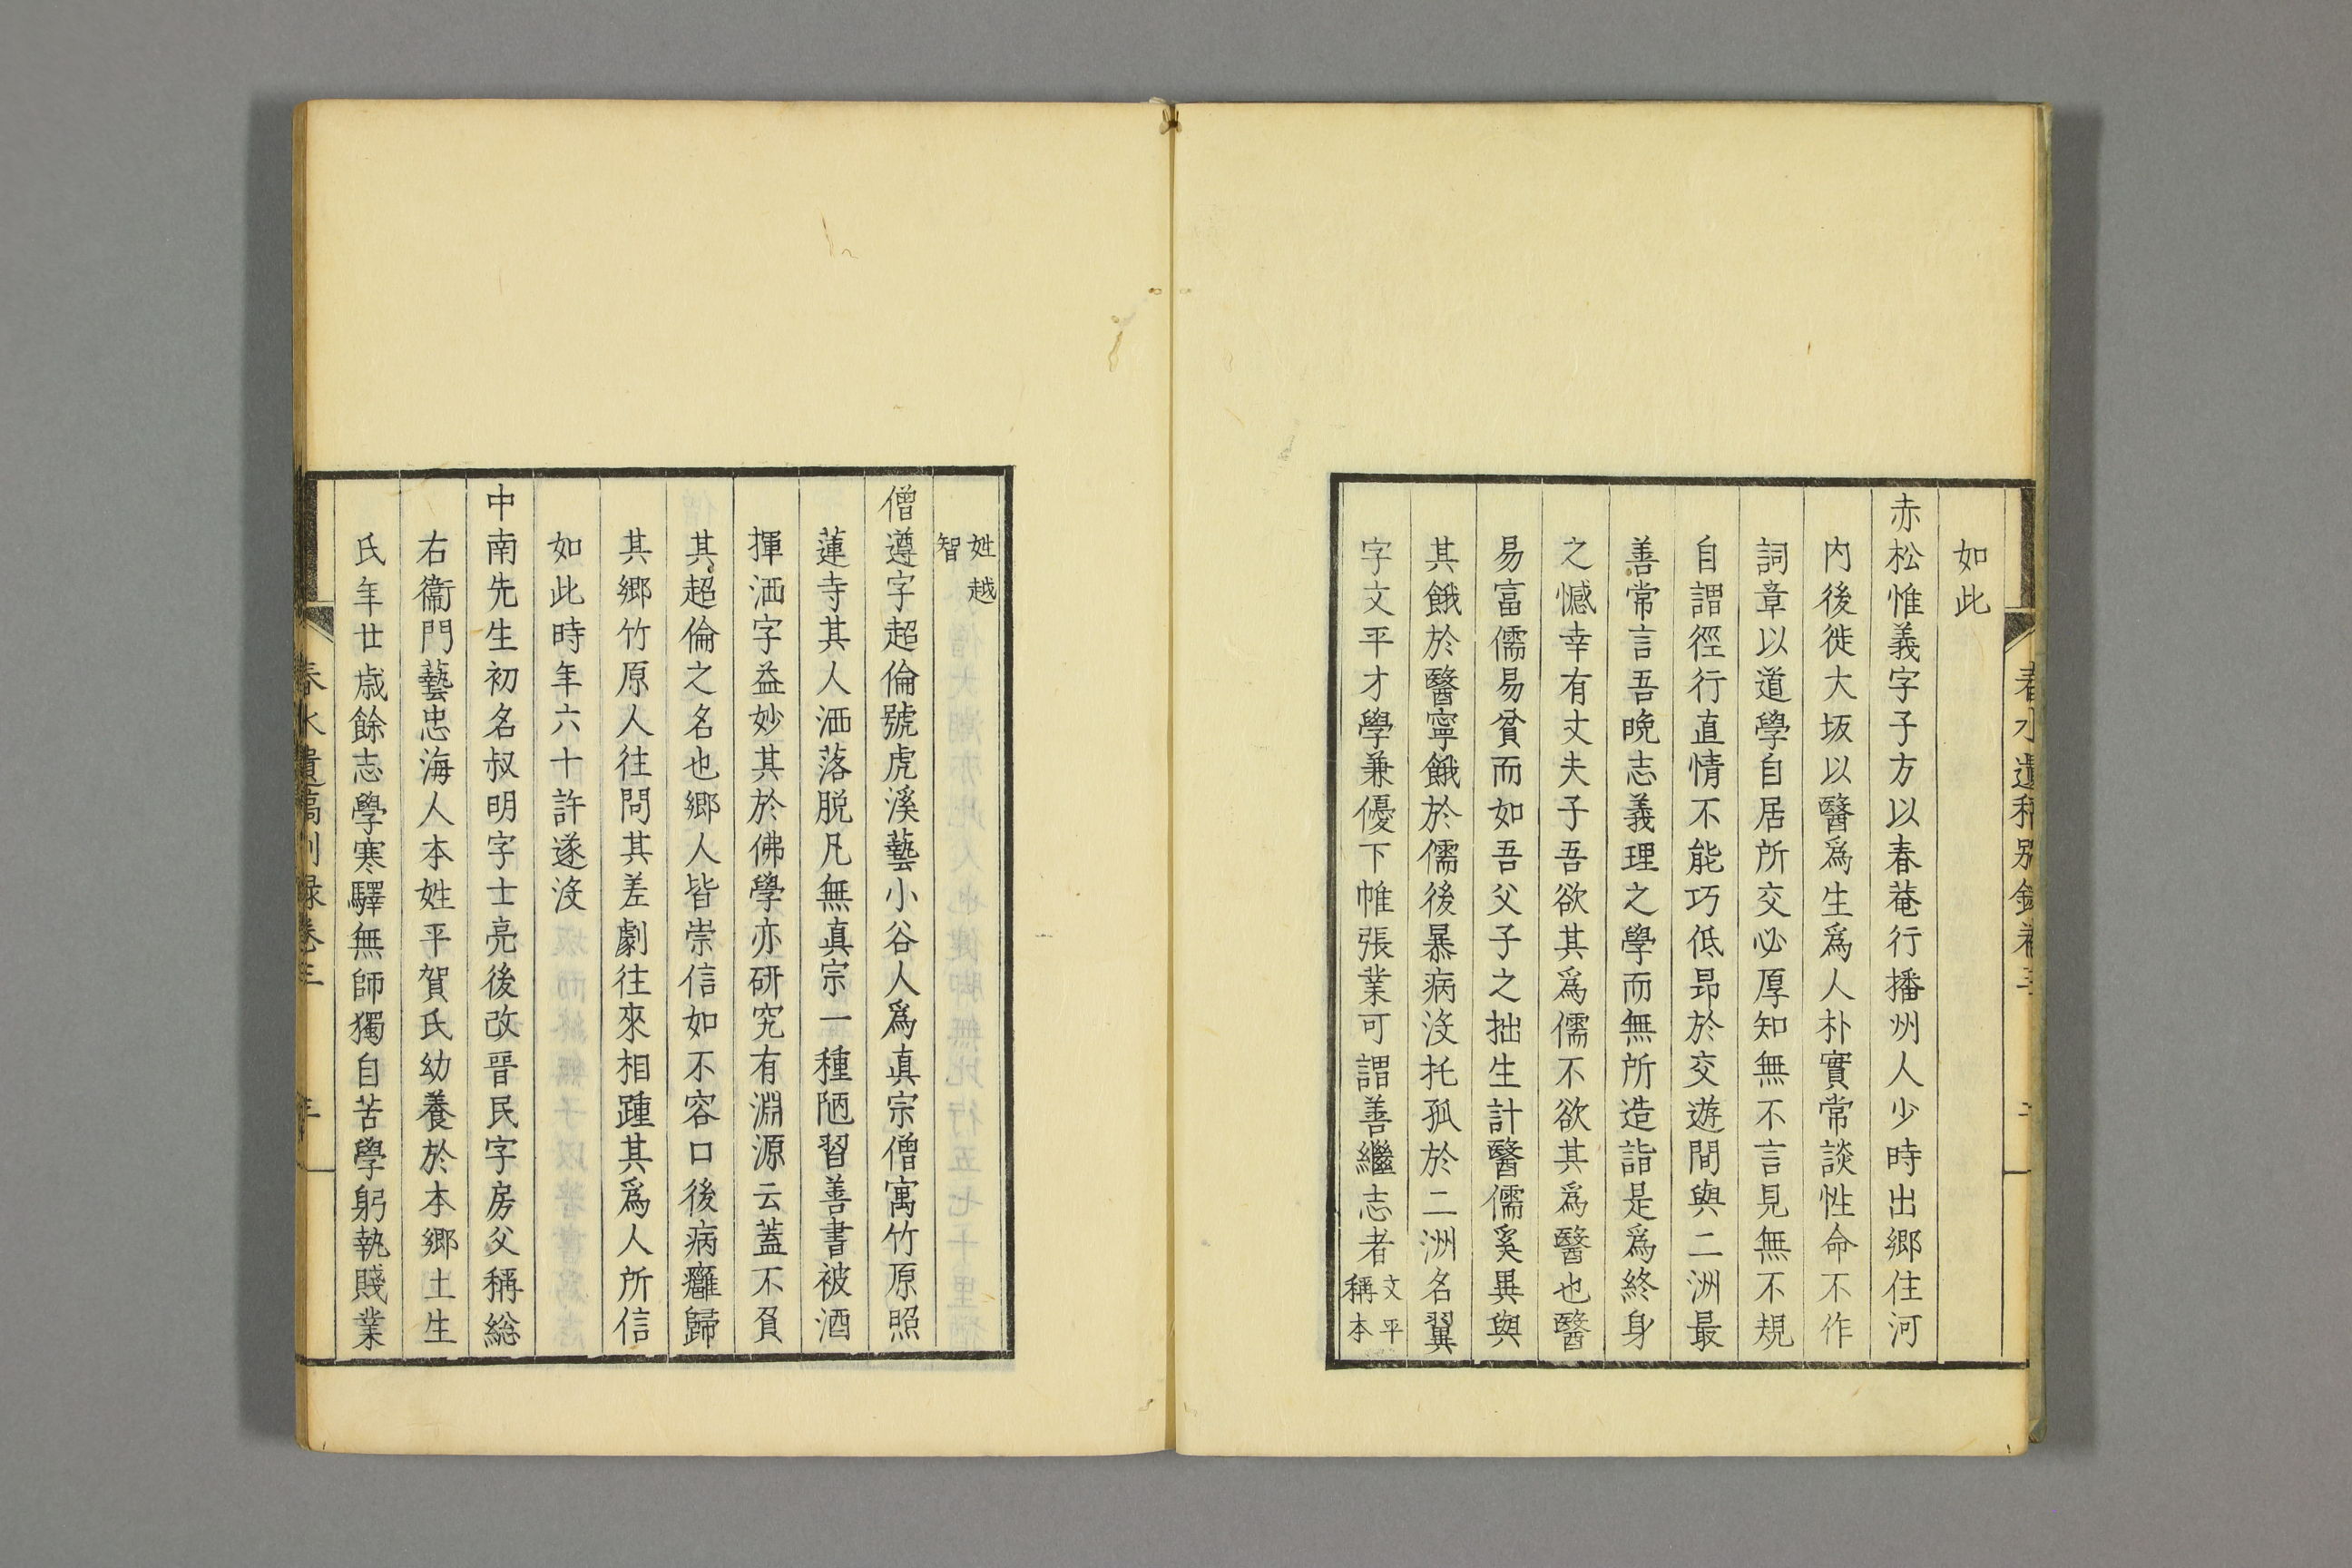 如此
赤松惟義字子方以春菴行播州人少時出鄉住河
内後徙大坂以醫爲生爲人朴實常談性命不作
詞章以道學自居所交必厚知無不言見無不規
自謂徑行直情不能巧低昂於交遊間與二洲最
善常言吾晩志義理之學而無所造詣是爲終身
之憾幸有丈夫子吾欲其爲儒不欲其爲醫也醫
易富儒易貧而如吾父子之拙生計醫儒奚異與
其餓於醫寧餓於儒後暴病沒托孤於二洲名翼
字文平才學兼優下帷張業可謂善繼志者文平
稱本
姓越
智
僧遵字超倫號虎溪藝小谷人爲真宗僧寓竹原照
蓮寺其人洒落脱凡無真宗一種陋習善書被酒
揮洒字益妙其於佛學亦研究有淵源云蓋不負
其超倫之名也鄉人皆崇信如不容口後病癰歸
其鄉竹原人往問其差劇往來相踵其爲人所信
如此時年六十許遂沒
中南先生初名叔明字士亮後改晉民字房父稱総
右衞門藝忠海人本姓平賀氏幼養於本鄉土生
氏年廿歳餘志學寒驛無師獨自苦學躬執賤業
春水遺稿別録卷三